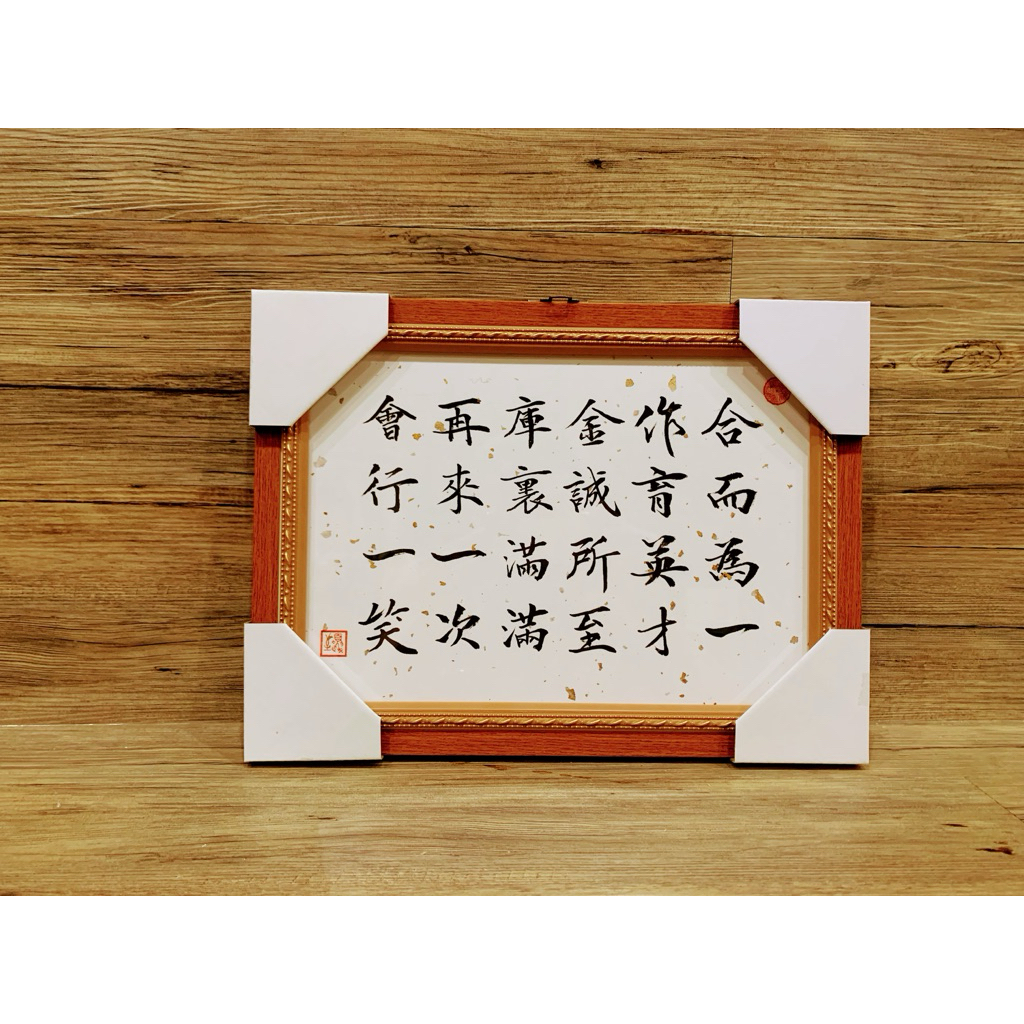 合而為一
作育英才
金誠所至
庫裏滿滿
再來一次
會行一笑